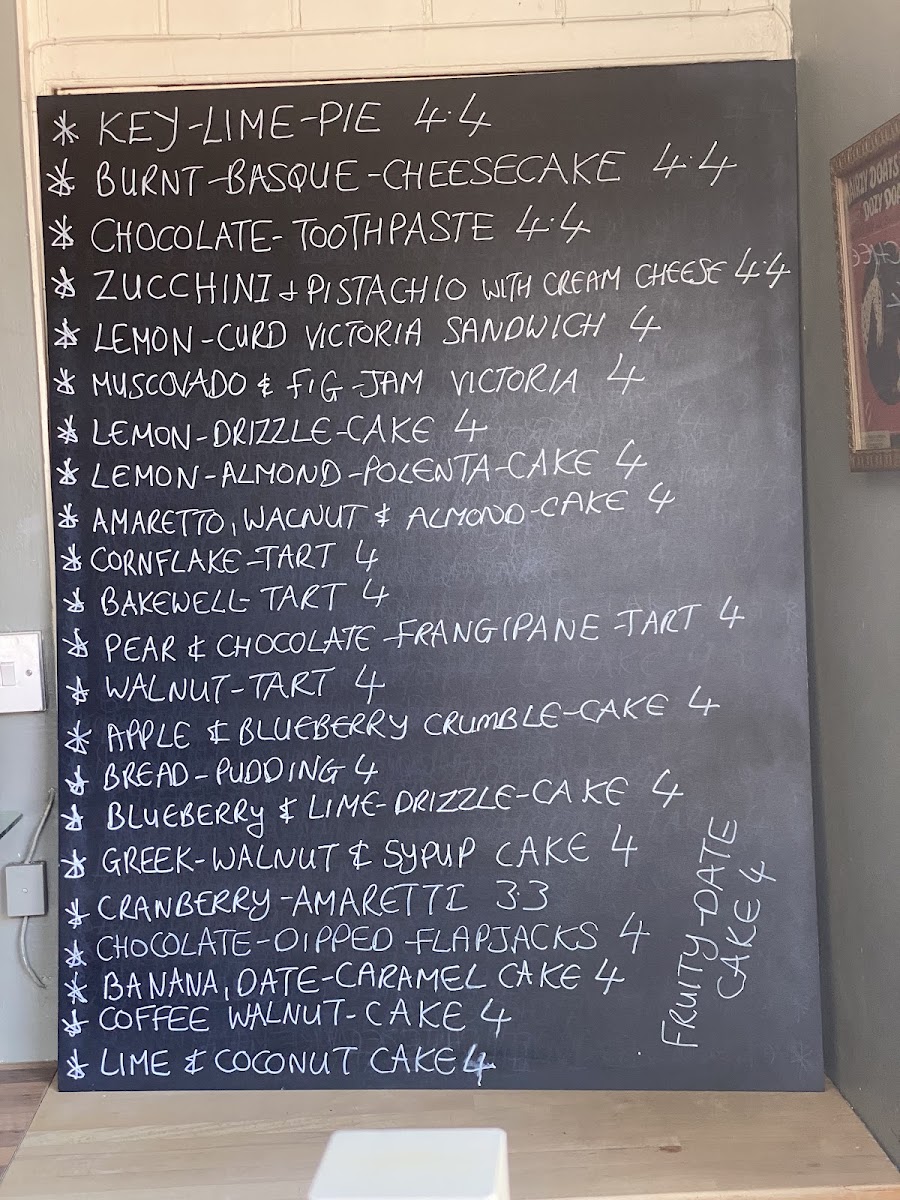 * KEY-LIME-PIE 4.4
* BURNT-BASQUE-CHEESECAKE 4.4
* CHOCOLATE-TOOTHPASTE 4.4
* ZUCCHINI & PISTACHIO WITH CREAM CHEESE 4.4
* LEMON-CURD VICTORIA SANDWICH 4
* MUSCOVADO & FIG-JAM VICTORIA 4
* LEMON-DRIZZLE-CAKE 4
* LEMON-ALMOND-POLENTA-CAKE 4
* AMARETTO, WALNUT & ALMOND-CAKE 4
* CORNFLAKE-TART 4
* BAKEWELL-TART 4
* PEAR & CHOCOLATE-FRANGIPANE-TART 4
* WALNUT-TART 4
* APPLE & BLUEBERRY CRUMBLE-CAKE 4
* BREAD-PUDDING 4
* BLUEBERRY & LIME-DRIZZLE-CAKE 4
* GREEK-WALNUT & SYPUP CAKE 4
* CRANBERRY-AMARETTI 3.3
* CHOCOLATE-DIPPED-FLAPJACKS 4
* BANANA, DATE-CARAMEL CAKE 4
* COFFEE WALNUT-CAKE 4
* LIME & COCONUT CAKE 4
FRUITY-DATE
CAKE 4
DOATS
DOZY